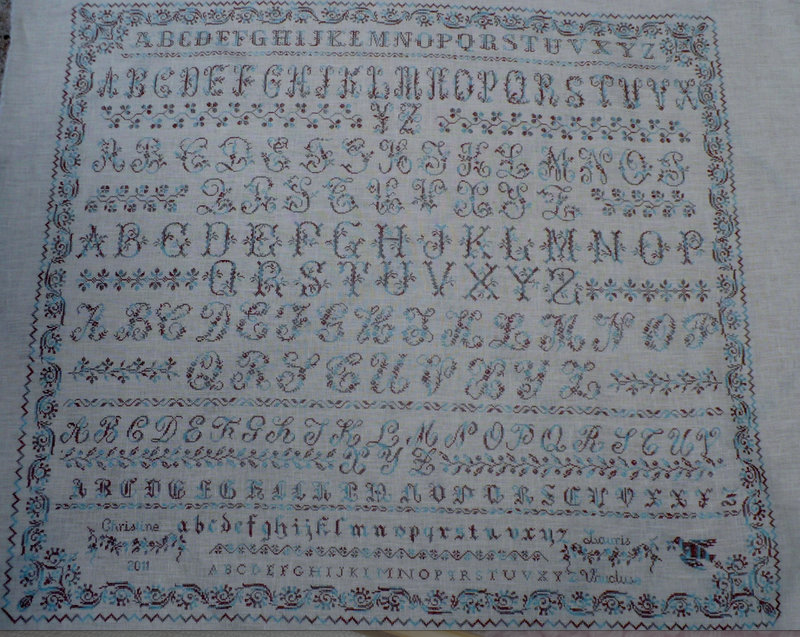 ABCDEFGHIJKLMNOPQRSTUVXYZ
ABCDEFGHIKLMNOPQRSTUVX
YZ
ABCDEFGHIKLMNOS
QRSTUVXYZ
ABCDEFGHJKLMNOP
QRSTUVXYZ
ABCDEFGHIKLMNOP
QRSTUVXYZ
ABCDEFGHIKLMNOPQRSTUV
XYZ
ABCDEFGHIKLMNOPQRSTUVXYZ
Christine abcdefghijklmnopqrstuvxyz Lauris
2011 ABCDEFGHIJKLMNOPQRSTUVXYZ